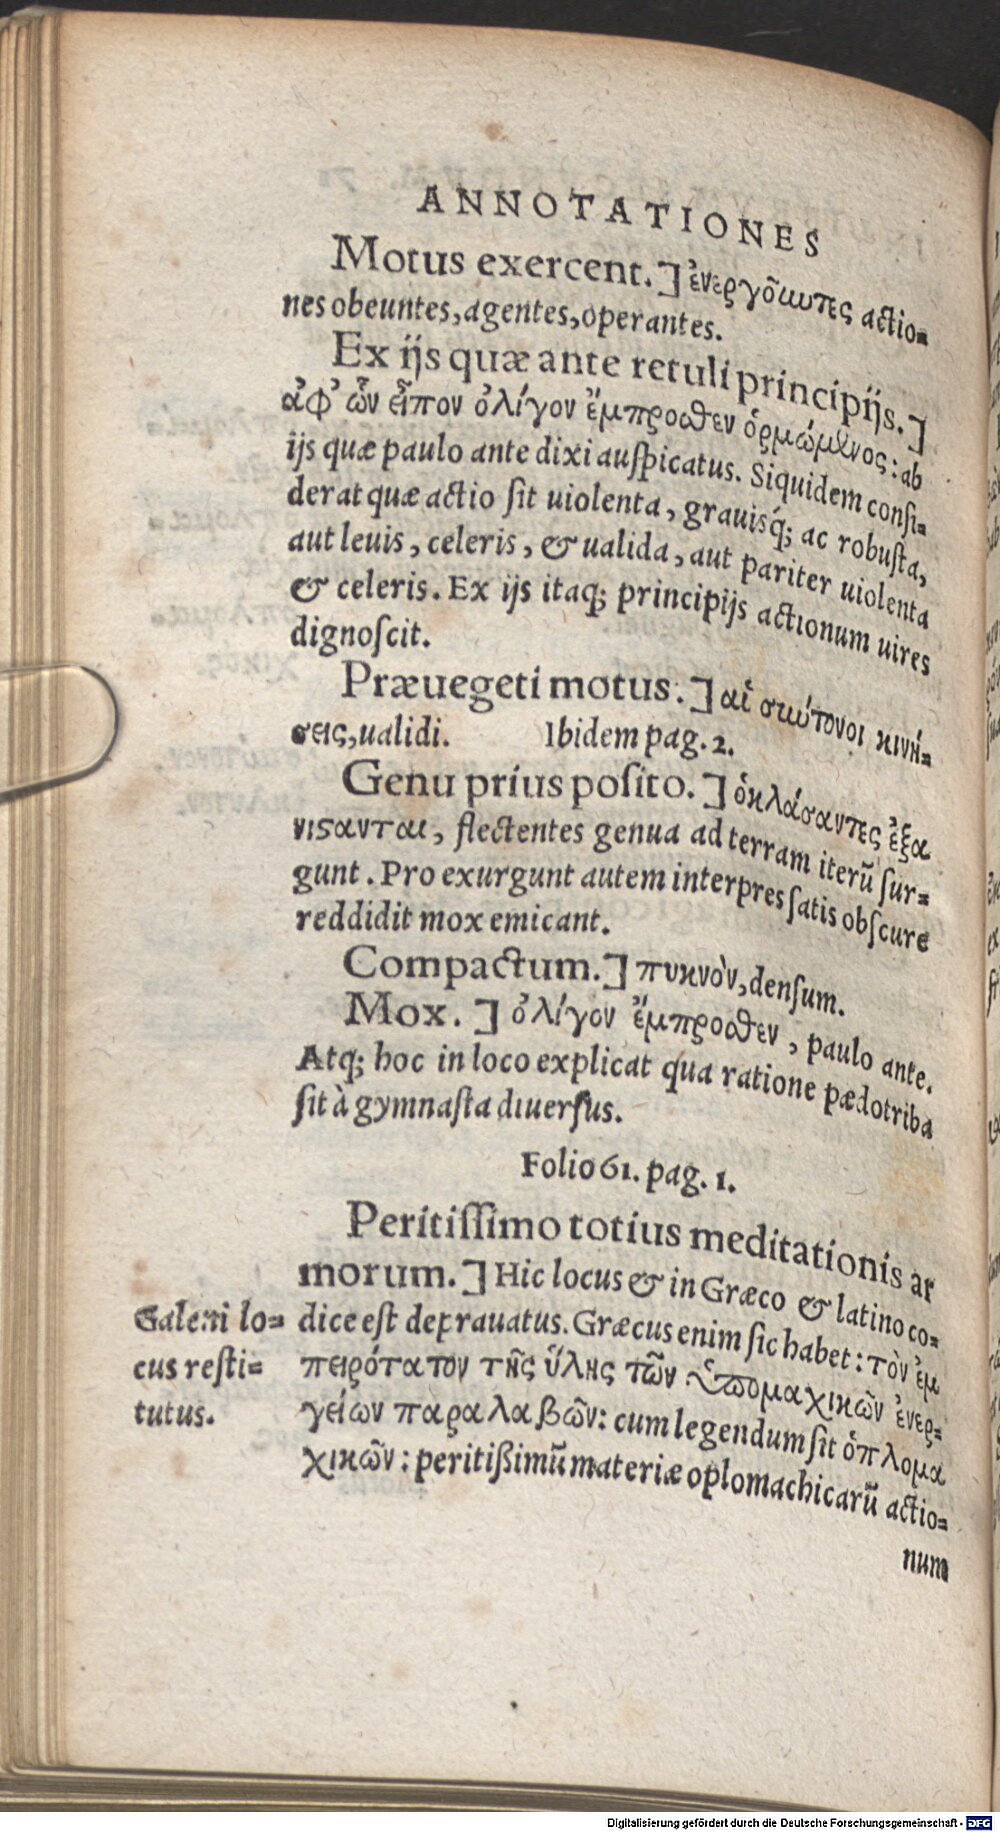 ANNOTATIONES
Motus exercent.] ἐνεργοῦντες actio-
nes obeuntes, agentes, operantes.
Ex ijs quæ ante retuli principijs.]
ἀφ᾽ ὧν εἶπον ὀλίγον ἔμπροσθεν ὁρμώμενος: ab
ijs quæ paulo ante dixi auſpicatus. Siquidem conſi-
derat quæ actio ſit uiolenta, grauisq́; ac robuſta,
aut leuis, celeris, & ualida, aut pariter uiolenta
& celeris. Ex ijs itaq; principijs actionum uires
dignoſcit.
Præuegeti motus.] αἱ σύντονοι κινή-
σεις, ualidi. Ibidem pag. 2.
Genu prius poſito.] ὀκλάσαντες ἐξα
νιϛανται, flectentes genua ad terram iterũ ſur-
gunt. Pro exurgunt autem interpres ſatis obſcure
reddidit mox emicant.
Compactum.] πυκνὸν, denſum.
Mox.] ὀλίγον ἔμπροσθεν, paulo ante.
Atq; hoc in loco explicat qua ratione pædotriba
ſit à gymnaſta diuerſus.
Folio 61. pag. 1.
Peritiſſimo totius meditationis ar
morum.] Hic locus & in Græco & latino co-
Galeni lo-
cus reſti-
tutus.
dice eſt deprauatus. Græcus enim ſic habet: τὸν ἐμ
πειρότατον τῆς ὕλης τῶν ὑπομαχικῶν ἐνερ-
γείων παραλαβῶν: cum legendum ſit ὁπλομα
χικῶν: peritißimũ materiæ oplomachicarũ actio-
num
Digitalisierung gefördert durch die Deutsche Forschungsgemeinschaft - DFG